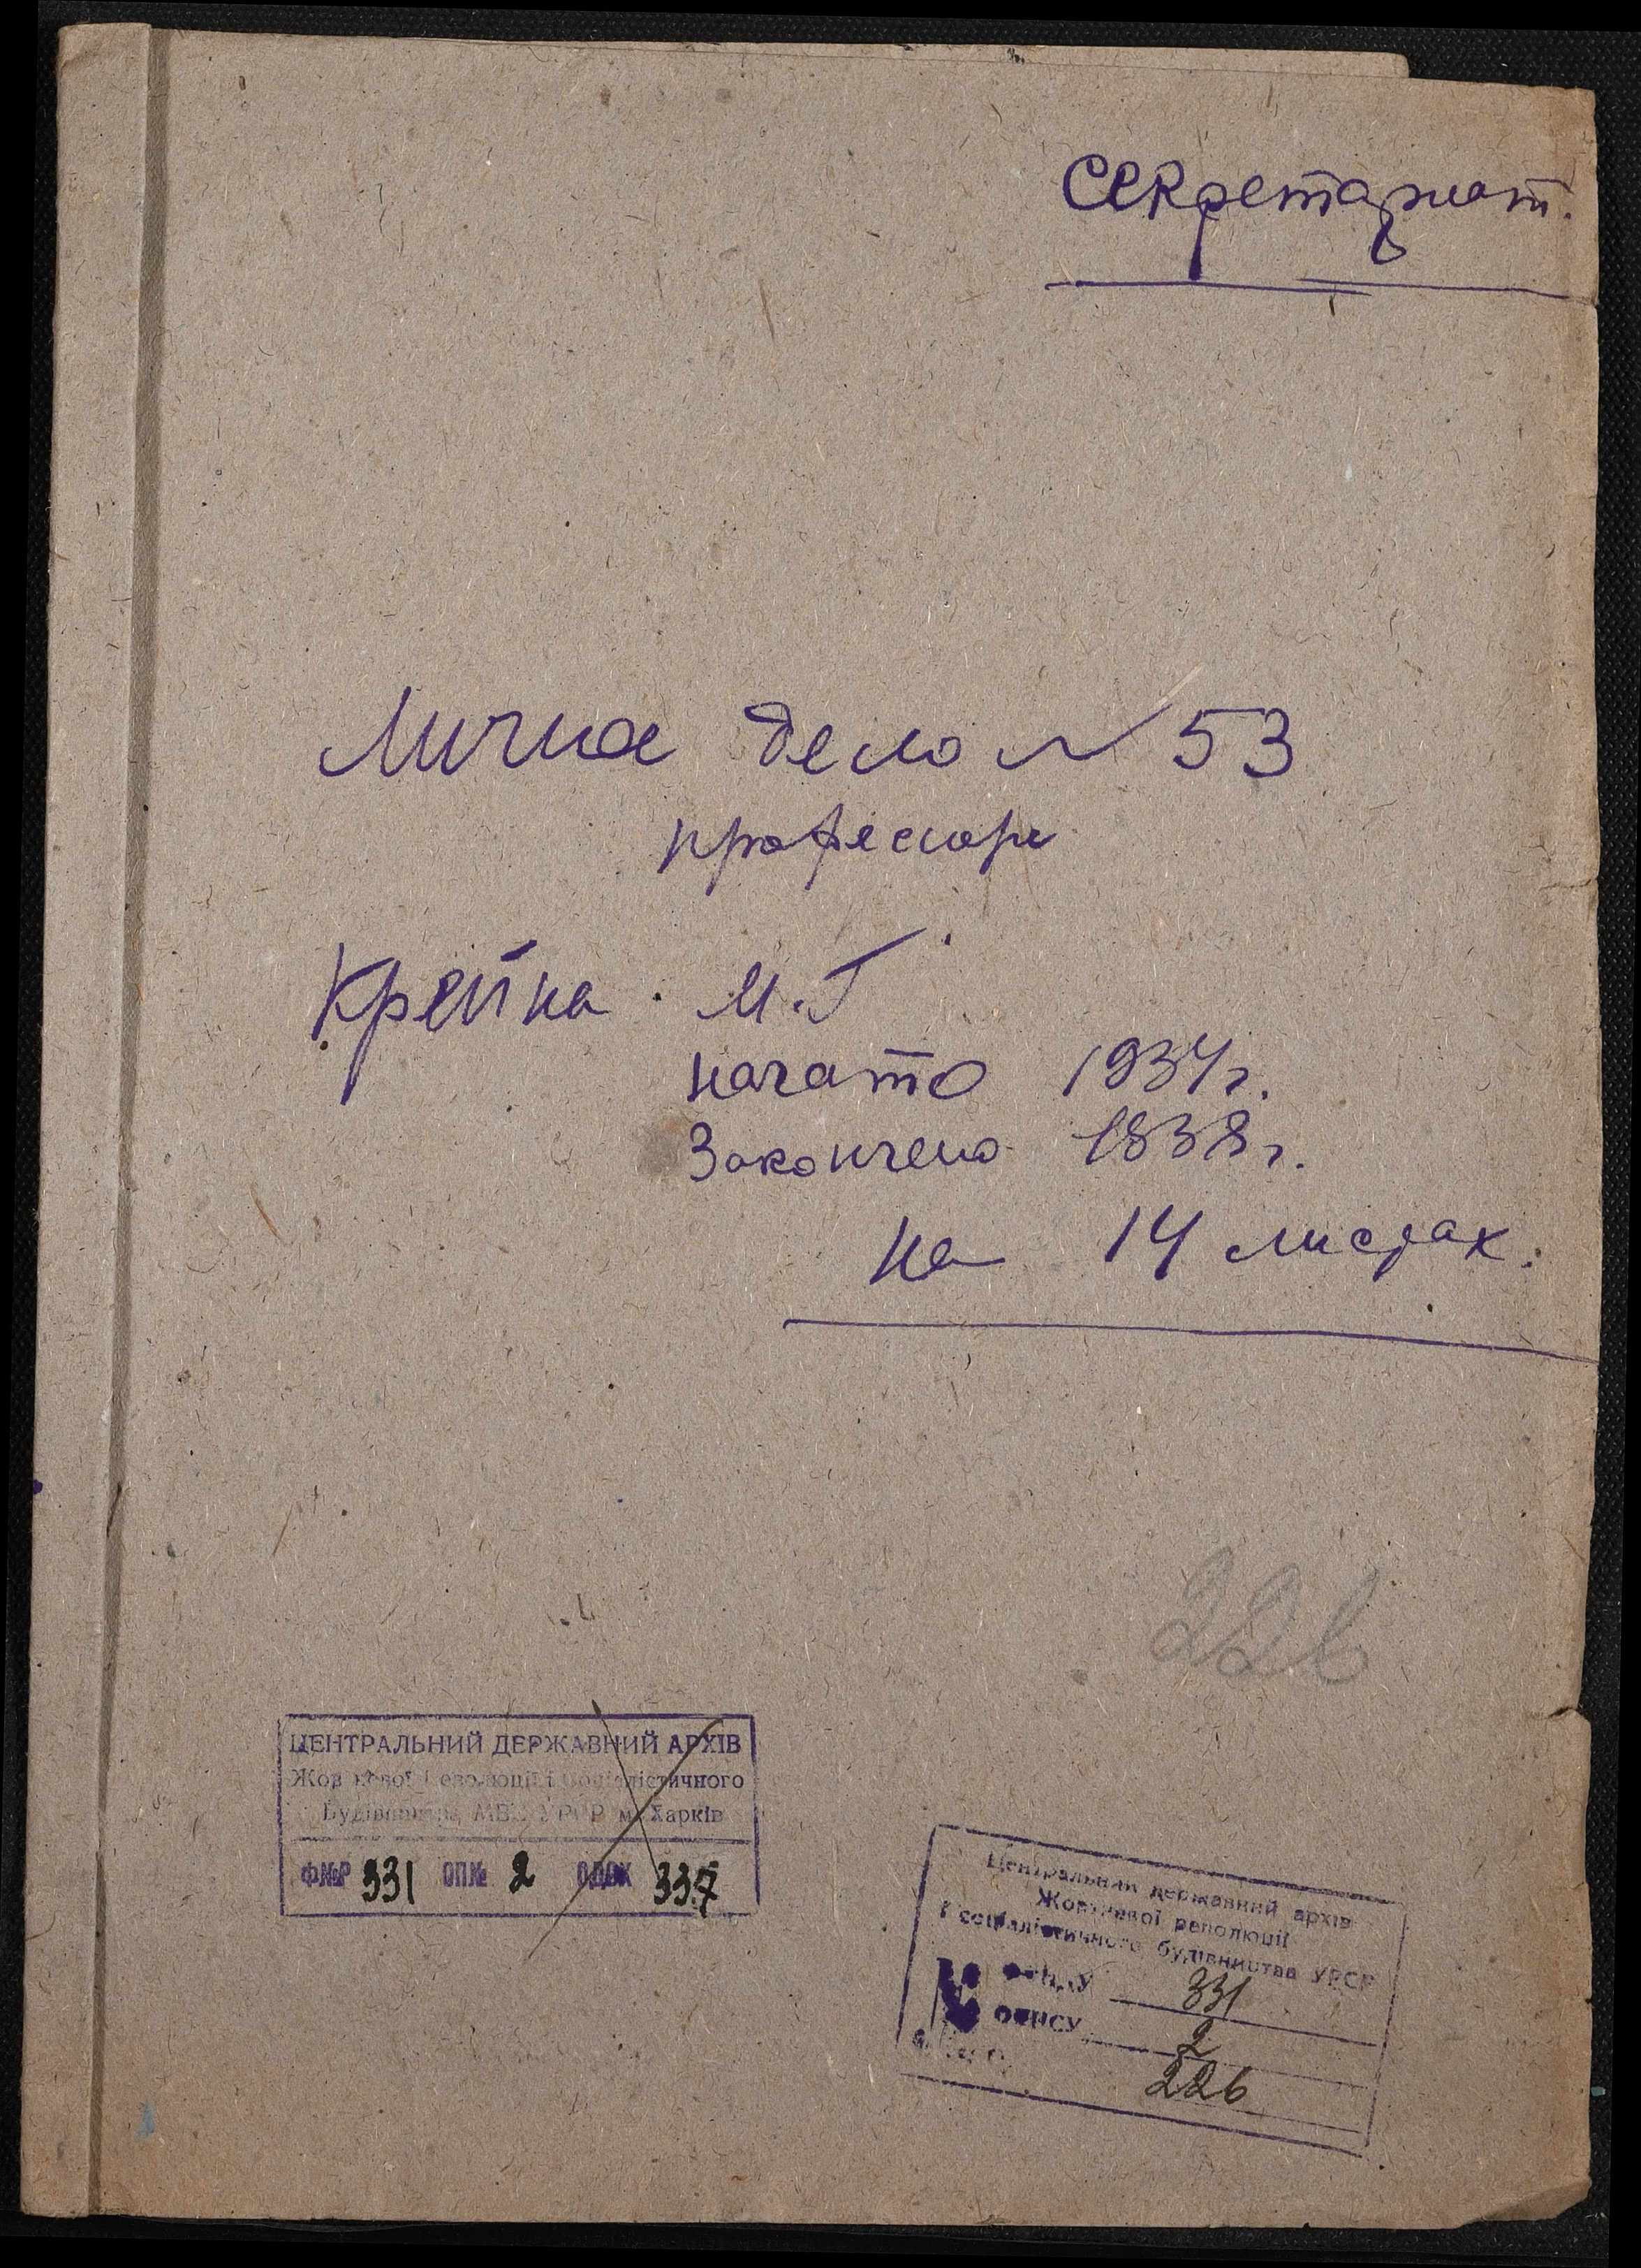 Секретариат.
Личное дело N 53
професора
Крейна М.Г
начато 1934г.
Закончено 1938г.
На 14 листах.
226
ЦЕНТРАЛЬНИЙ ДЕРЖАВНИЙ АРХІВ
Жовтневої Революції і Соціалістичного
Будівництва МВС УРСР м. Харків
Ф№Р 331 ОП№ 2 337
Центральний державний архів
Жовтневої революції
і соціалістичного будівництва УРСР
№ фонду 331
№ опису 2
226